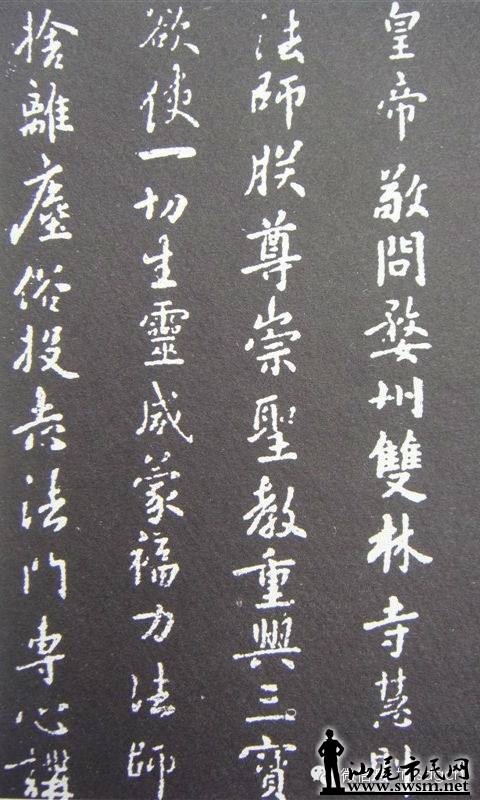 皇帝敬問婺州雙林寺慧
法師朕尊崇聖教重興三寶
欲使一切生靈咸蒙福力法師
捨離塵俗投志法門專心講
微信
汕尾市民网
www.swsm.net